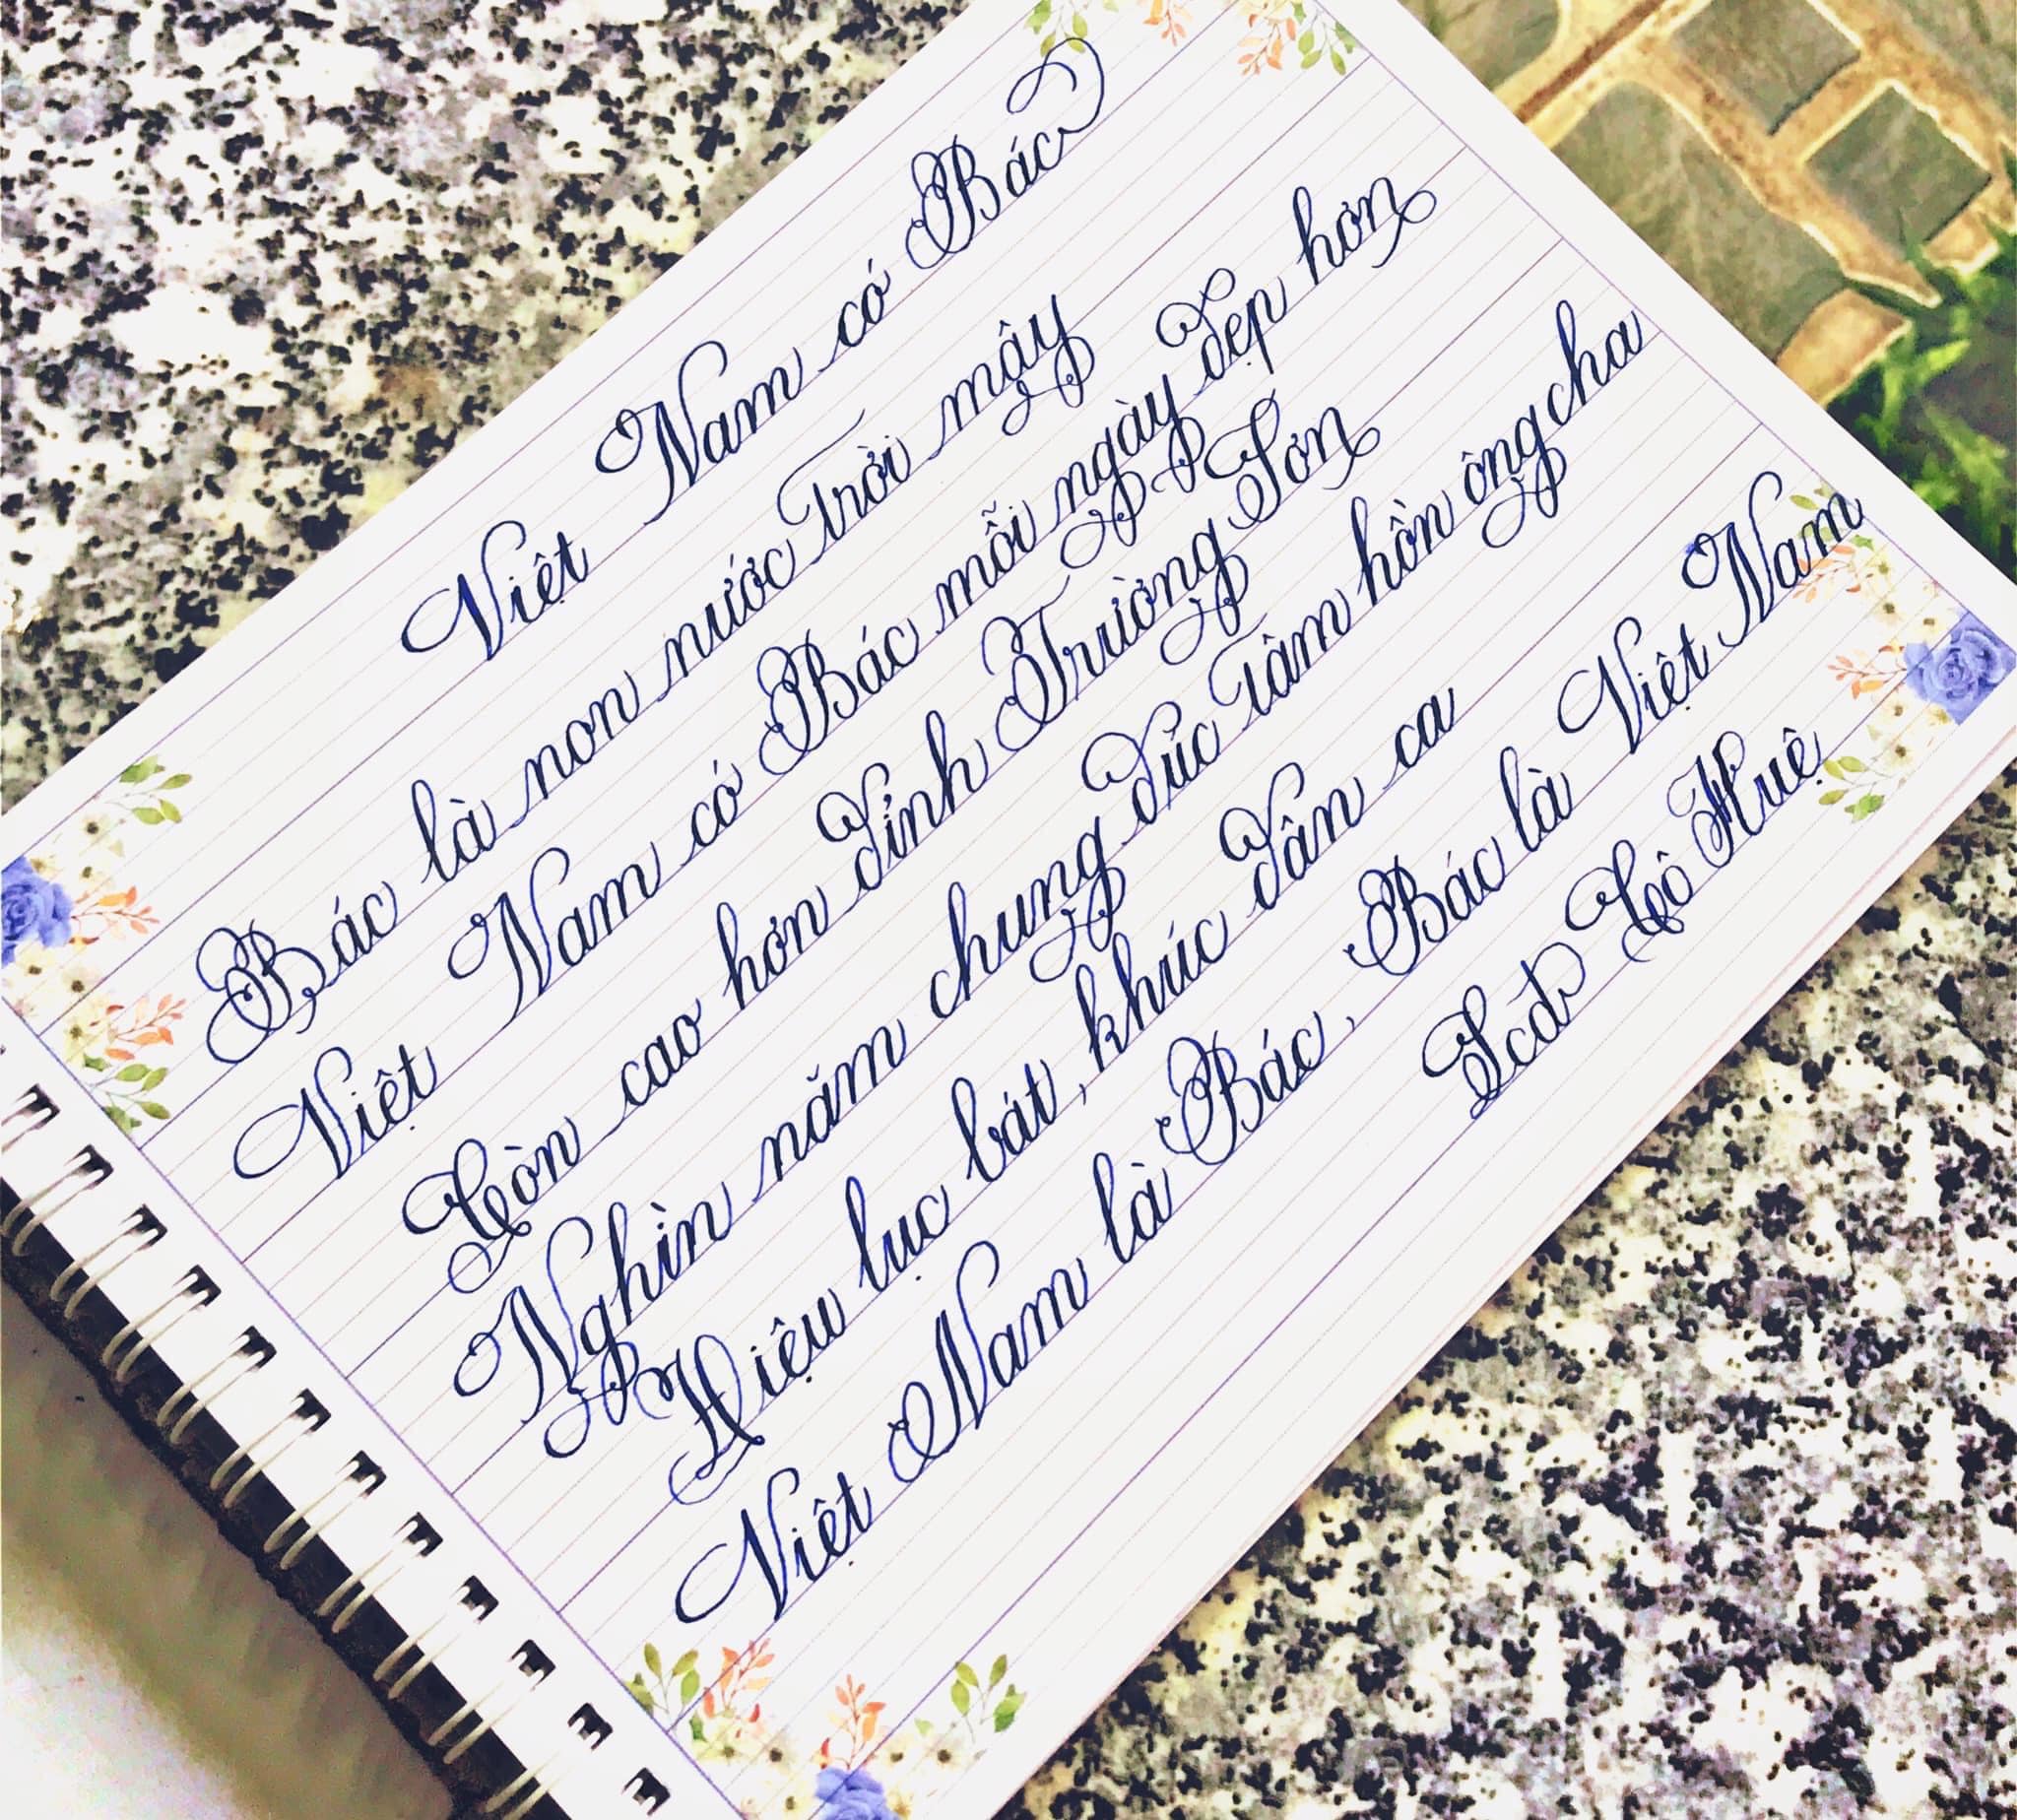 Việt Nam có Bác
Bác là non nước trời mây
Việt Nam có Bác mỗi ngày đẹp hơn
Còn cao hơn đỉnh Trường Sơn
Nghìn năm chung đúc tâm hồn ông cha
Điệu lục bát, khúc dân ca
Việt Nam là Bác, Bác là Việt Nam
Scđ Cô Huệ